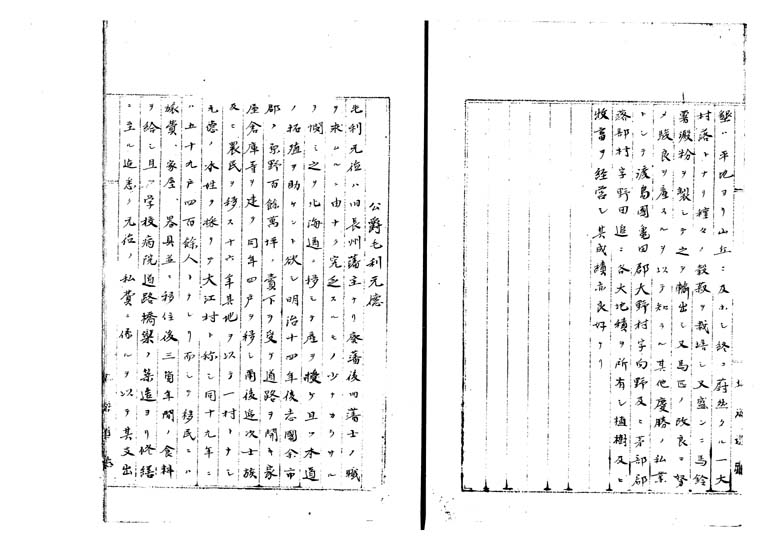 墾ハ平地ヨリ山丘ニ及ホシ終ニ蔚然タル一大
村落トナリ種々ノ穀菽ヲ栽培シ又盛ンニ馬鈴
薯澱粉ヲ製シテ之ヲ輸出シ又馬匹ノ改良ニ努
メ駿良ヲ産スルヲ以テ知ラル其他慶勝ノ私業
トシテ渡島國亀田郡大野村字向野及ヒ茅部郡
落部村字野田追ニ各大地積ヲ所有シ植樹及ヒ
牧畜ヲ経営シ其成績亦良好ナリ
公爵毛利元徳
毛利元徳ハ旧長州藩主ナリ廃藩後旧藩士ノ職
ヲ求ムルニ由ナク究乏スルモノ少ナカラサル
ヲ憫ミ之ヲ北海道ニ移シテ産ヲ授ケ且ツ本道
ノ拓殖ヲ助ケント欲シ明治十四年後志國余市
郡ノ原野百餘萬坪ノ賣下ヲ受ケ道路ヲ開キ家
屋倉庫等ヲ建テ同年四戸ヲ移シ爾後逐次士族
及ヒ農民ヲ移ス十六年其地ヲ以テ一村トナシ
元徳ノ本姓ヲ採リテ大江村ト称シ同十九年ニ
ハ五十九戸四百餘人トナレリ而シテ移民ニハ
旅費、家屋、器具並ニ移住後三箇年間ノ食料
ヲ給シ且ツ学校病院道路橋梁ノ築造ヨリ修繕
ニ至ル迄悉ク元徳ノ私費ニ係ルヲ以テ其支出